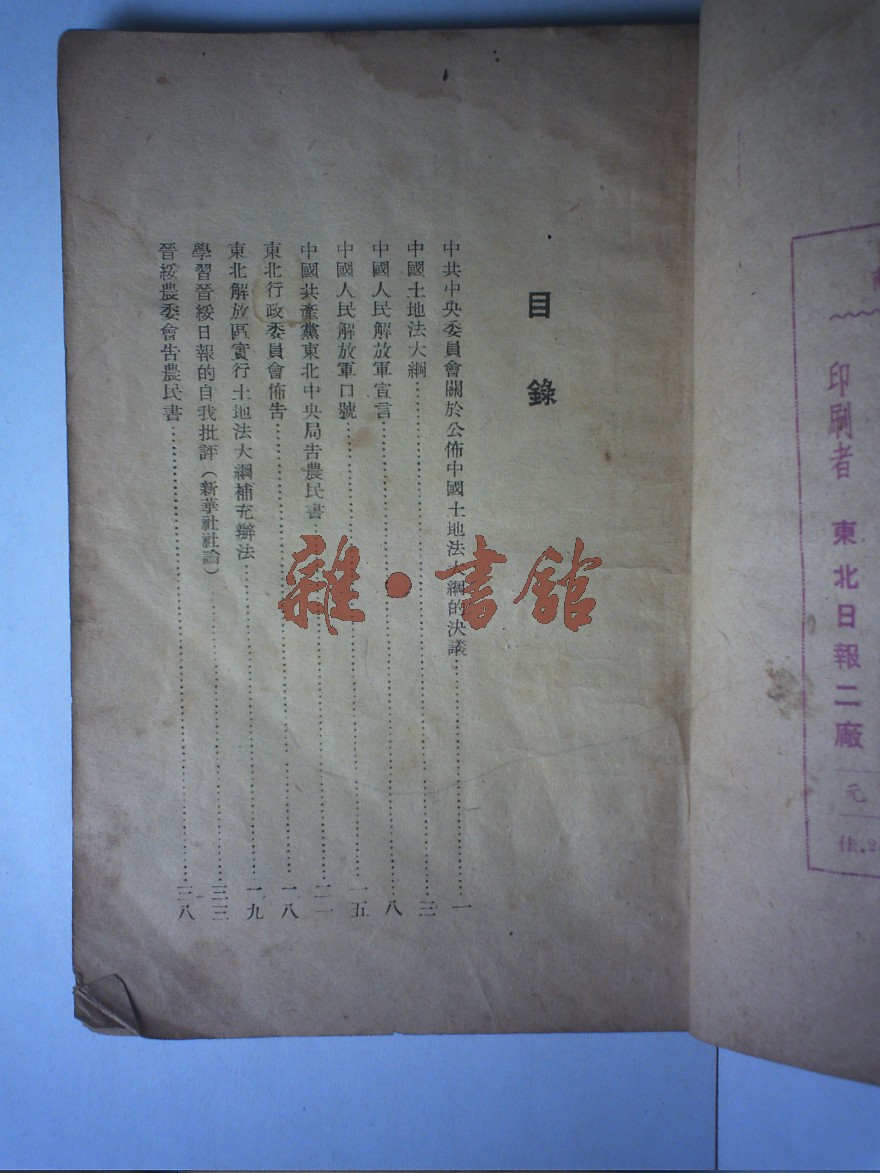 目錄
中共中央委員會關於公佈中國土地法大綱的決議……一
中國土地法大綱……三
中國人民解放軍宣言……八
中國人民解放軍口號……一五
中國共產黨東北中央局告農民書……
東北行政委員會佈告……一八
東北解放區實行土地法大綱補充辦法……一九
學習晉綏日報的自我批評(新華社社論)……
晉綏農委會告農民書……二八
雜·書館
印刷者 東北日報二廠
元
佳.2